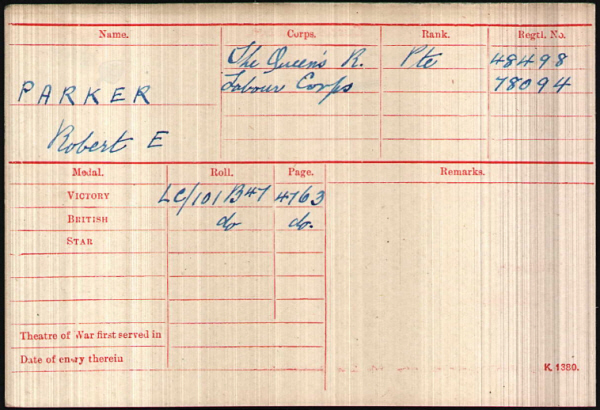 Name. Corps. Rank. Regtl. No.
The Queen's R. Pte 48498
PARKER Labour Corps 78094
Robert E
Medal. Roll. Page. Remarks.
VICTORY LC/101B47 4763
BRITISH do do.
STAR
Theatre of War first served in
Date of entry therein
K. 1380.